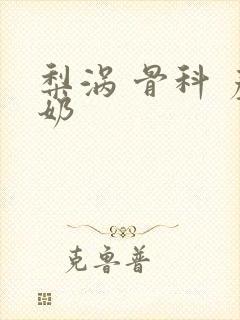 梨涡 骨科
奶
克鲁普